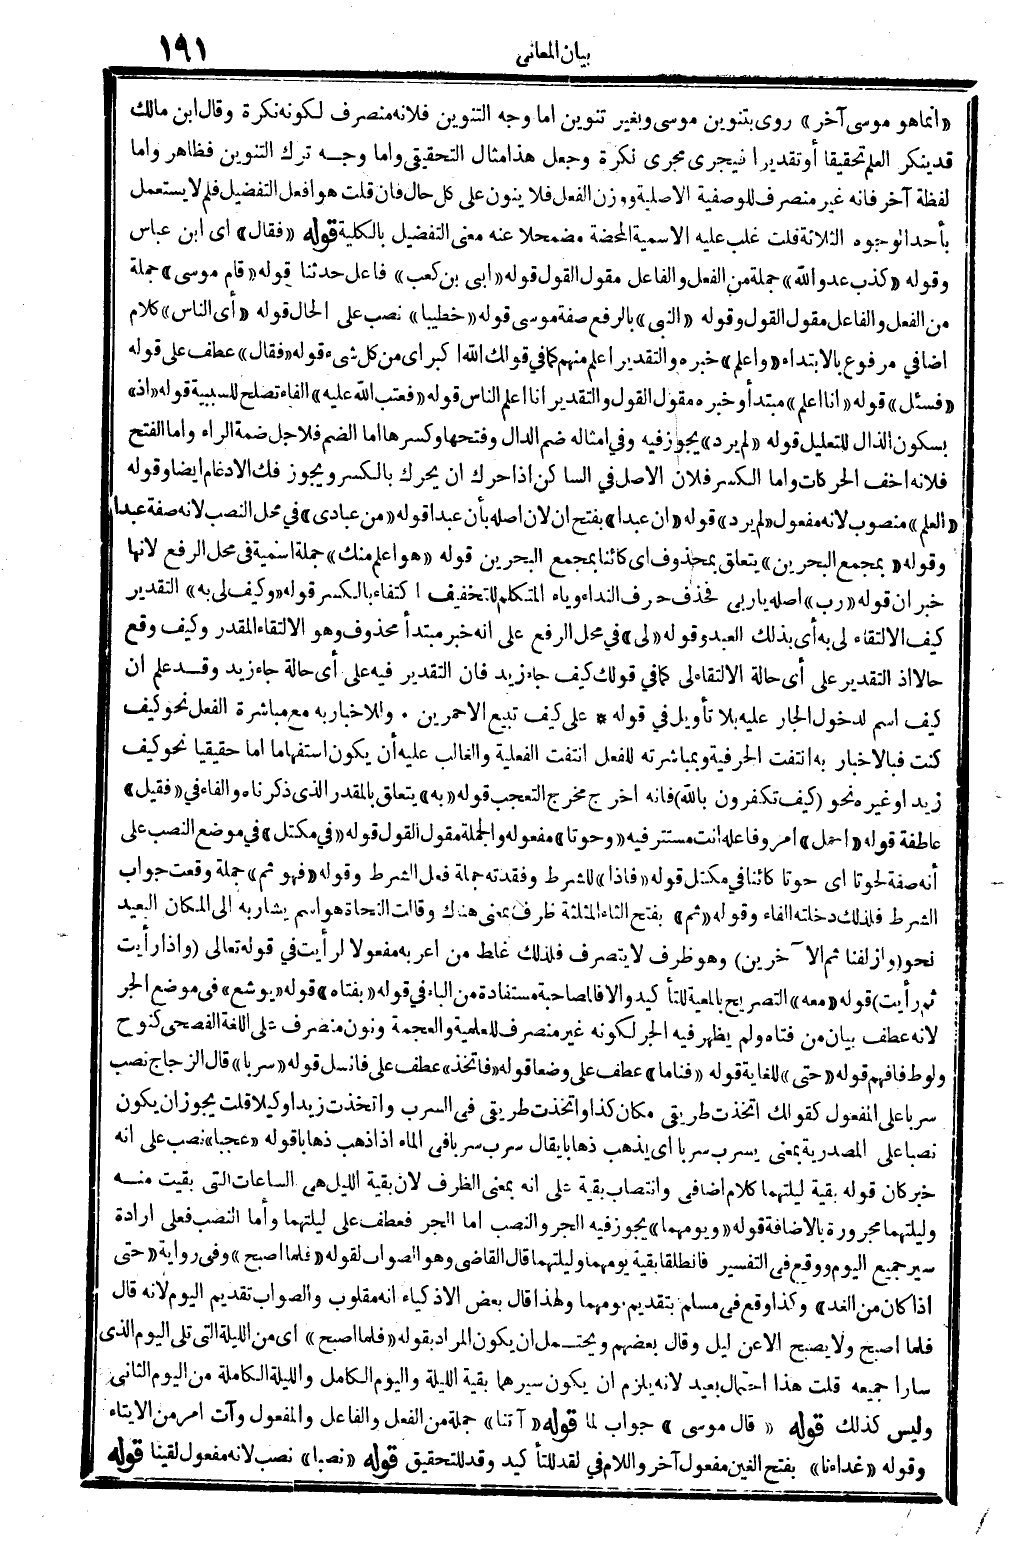 بيان المعانى ١٩١
«انماهو موسى آخر» روى بتنوين موسى وبغير تنوين اما وجه التنوين فلانه منصرف لكونه نكرة وقال ابن مالك
قد ينكر العلم تحقيقا أو تقديرا فيجرى مجرى نكرة وجعل هذا مثال التحقيقى واما وجه ترك التنوين فظاهر واما
لفظة آخر فانه غير منصرف للوصفية الاصلية ووزن الفعل فلا ينون على كل حال فان قلت هو افعل التفضيل فلم لا يستعمل
بأحد الوجوه الثلاثة قلت غلب عليه الاسمية المحضة مضمحلا عنه معنى التفضيل بالكلية قوله «فقال» اى ابن عباس
وقوله «كذب عدو الله» جملة من الفعل والفاعل مقول القول قوله «ابى بن كعب» فاعل حدثنا قوله «قام موسى» جملة
من الفعل والفاعل مقول القول وقوله «النبى» بالرفع صفة موسى قوله «خطيبا» نصب على الحال قوله «أى الناس» كلام
اضافي مرفوع بالابتداء «واعلم» خبره والتقدير اعلم منهم كما في قولك الله اكبر اى من كل شىء قوله «فقال» عطف على قوله
«فسئل» قوله «انا اعلم» مبتدأ وخبره مقول القول والتقدير انا اعلم الناس قوله «فعتب الله عليه» الفاء تصلح للسببية قوله «اذ»
بسكون الذال للتعليل قوله «لم يرد» يجوز فيه وفي امثاله ضم الدال وفتحها وكسرها اما الضم فلاجل ضمة الراء واما الفتح
فلانه اخف الحركات واما الكسر فلان الاصل في الساكن اذا حرك ان يحرك بالكسر ويجوز فك الادغام ايضا وقوله
«العلم» منصوب لانه مفعول «لم يرد» قوله «ان عبدا» بفتح ان لان اصله بأن عبدا قوله «من عبادى» في محل النصب لانه صفة عبدا
وقوله «بمجمع البحرين» يتعلق بمحذوف اى كائنا بمجمع البحرين قوله «هو اعلم منك» جملة اسمية في محل الرفع لانها
خبر ان قوله «رب» اصله ياربى فحذف حرف النداء وياء المتكلم للتخفيف اكتفاء بالكسر قوله «وكيف لى به» التقدير
كيف الالتقاء لى به أى بذلك العبد وقوله «لى» في محل الرفع على انه خبر مبتدأ محذوف وهو الالتقاء المقدر وكيف وقع
حالا اذ التقدير على أى حالة الالتقاء لى كما في قولك كيف جاء زيد فان التقدير فيه على أى حالة جاء زيد وقد علم ان
كيف اسم لدخول الجار عليه بلا تأويل في قوله * على كيف تبيع الاحمرين * وللاخبار به مع مباشرة الفعل نحو كيف
كنت فبالاخبار به انتفت الحرفية وبمباشرته للفعل انتفت الفعلية والغالب عليه أن يكون استفهاما اما حقيقيا نحو كيف
زيد او غيره نحو (كيف تكفرون بالله) فانه اخرج مخرج التعجب قوله «به» يتعلق بالمقدر الذى ذكرناه والفاء في «فقيل»
عاطفة قوله «احمل» امر وفاعله انت مستتر فيه «وحوتا» مفعوله والجملة مقول القول قوله «في مكتل» في موضع النصب على
أنه صفة لحوتا اى حوتا كائنا في مكتل قوله «فاذا» للشرط وفقدته جملة فعل الشرط وقوله «فهو ثم» جملة وقعت جواب
الشرط فلذلك دخلته الفاء وقوله «ثم» بفتح الثاء المثلثة ظرف بمعنى هناك وقالت النحاة هو اسم يشار به الى المكان البعيد
نحو (وازلفنا ثم الآخرين) وهو ظرف لا يتصرف فلذلك غلط من اعربه مفعولا لرأيت في قوله تعالى (واذا رأيت
ثم رأيت) قوله «معه» التصريح بالمعية للتأكيد والا فالمصاحبة مستفادة من الباء في قوله «بفتاه» قوله «يوشع» فى موضع الجر
لانه عطف بيان من فتاه ولم يظهر فيه الجر لكونه غير منصرف للعلمية والعجمة ونون منصرف على اللغة الفصحى كنوح
ولوط فافهم قوله «حتى» للغاية قوله «فناما» عطف على وضعا قوله «فاتخذ» عطف على فانسل قوله «سربا» قال الزجاج نصب
سربا على المفعول كقولك اتخذت طريقى مكان كذا واتخذت طريقى فى السرب واتخذت زيدا وكيلا قلت يجوز ان يكون
نصبا على المصدرية بمعنى يسرب سربا اى يذهب ذهابا يقال سرب سربا فى الماء اذا ذهب ذهابا قوله «عجبا» نصب على انه
خبر كان قوله بقية ليلتهما كلام اضافى وانتصاب بقية على انه بمعنى الظرف لان بقية الليل هى الساعات التى بقيت منه
وليلتهما مجرورة بالاضافة قوله «ويومهما» يجوز فيه الجر والنصب اما الجر فعطف على ليلتهما وأما النصب فعلى ارادة
سير جميع اليوم ووقع فى التفسير فانطلقا بقية يومهما وليلتهما قال القاضى وهو الصواب لقوله «فلما اصبح» وفى رواية «حتى
اذا كان من الغد» وكذا وقع فى مسلم بتقديم يومهما ولهذا قال بعض الاذكياء انه مقلوب والصواب تقديم اليوم لانه قال
فلما اصبح ولا يصبح الا عن ليل وقال بعضهم ويحتمل ان يكون المراد بقوله «فلما اصبح» اى من الليلة التى تلى اليوم الذى
سارا جميعه قلت هذا احتمال بعيد لانه يلزم ان يكون سيرهما بقية الليلة واليوم الكامل والليلة الكاملة من اليوم الثانى
وليس كذلك قوله «قال موسى» جواب لما قوله «آتنا» جملة من الفعل والفاعل والمفعول وآت امر من الايتاء
وقوله «غداءنا» بفتح الغين مفعول آخر واللام في لقد للتأكيد وقد للتحقيق قوله «نصبا» نصب لانه مفعول لقينا قوله